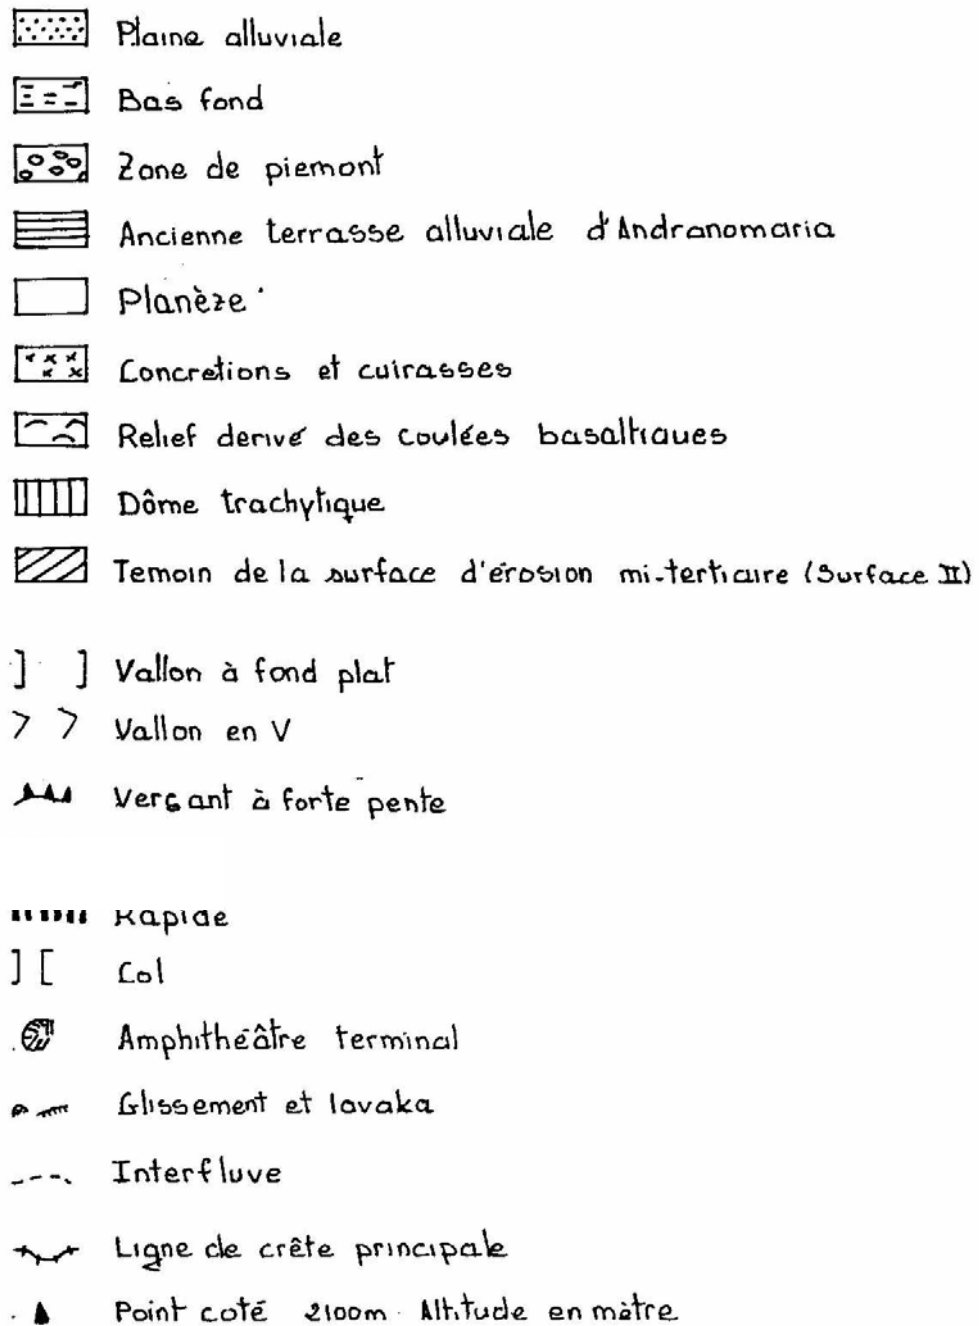 Plaine alluviale
Bas fond
Zone de piemont
Ancienne terrasse alluviale d'Andranomaria
Planèze
Concretions et cuirasses
Relief derivé des coulées basaltiques
Dôme trachytique
Temoin de la surface d'érosion mi-tertiaire (Surface II)
Vallon à fond plat
Vallon en V
Versant à forte pente
Rapide
Col
Amphithéâtre terminal
Glissement et lavaka
Interfluve
Ligne de crête principale
Point coté 2100m Altitude en mètre